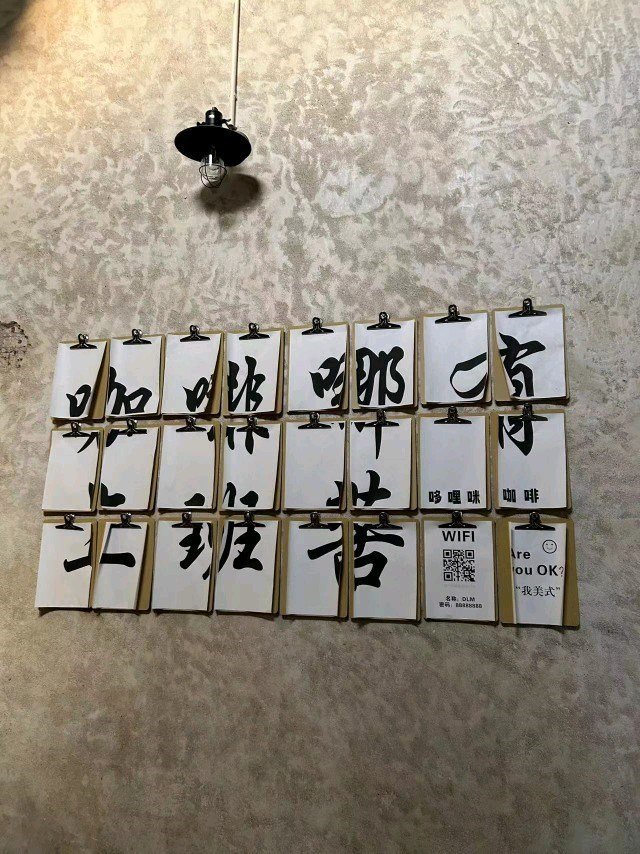 咖啡哪有
上班苦
哆哩咪 咖啡
WIFI
名称:DLM
密码:88888888
Are
you OK?
"我美式"